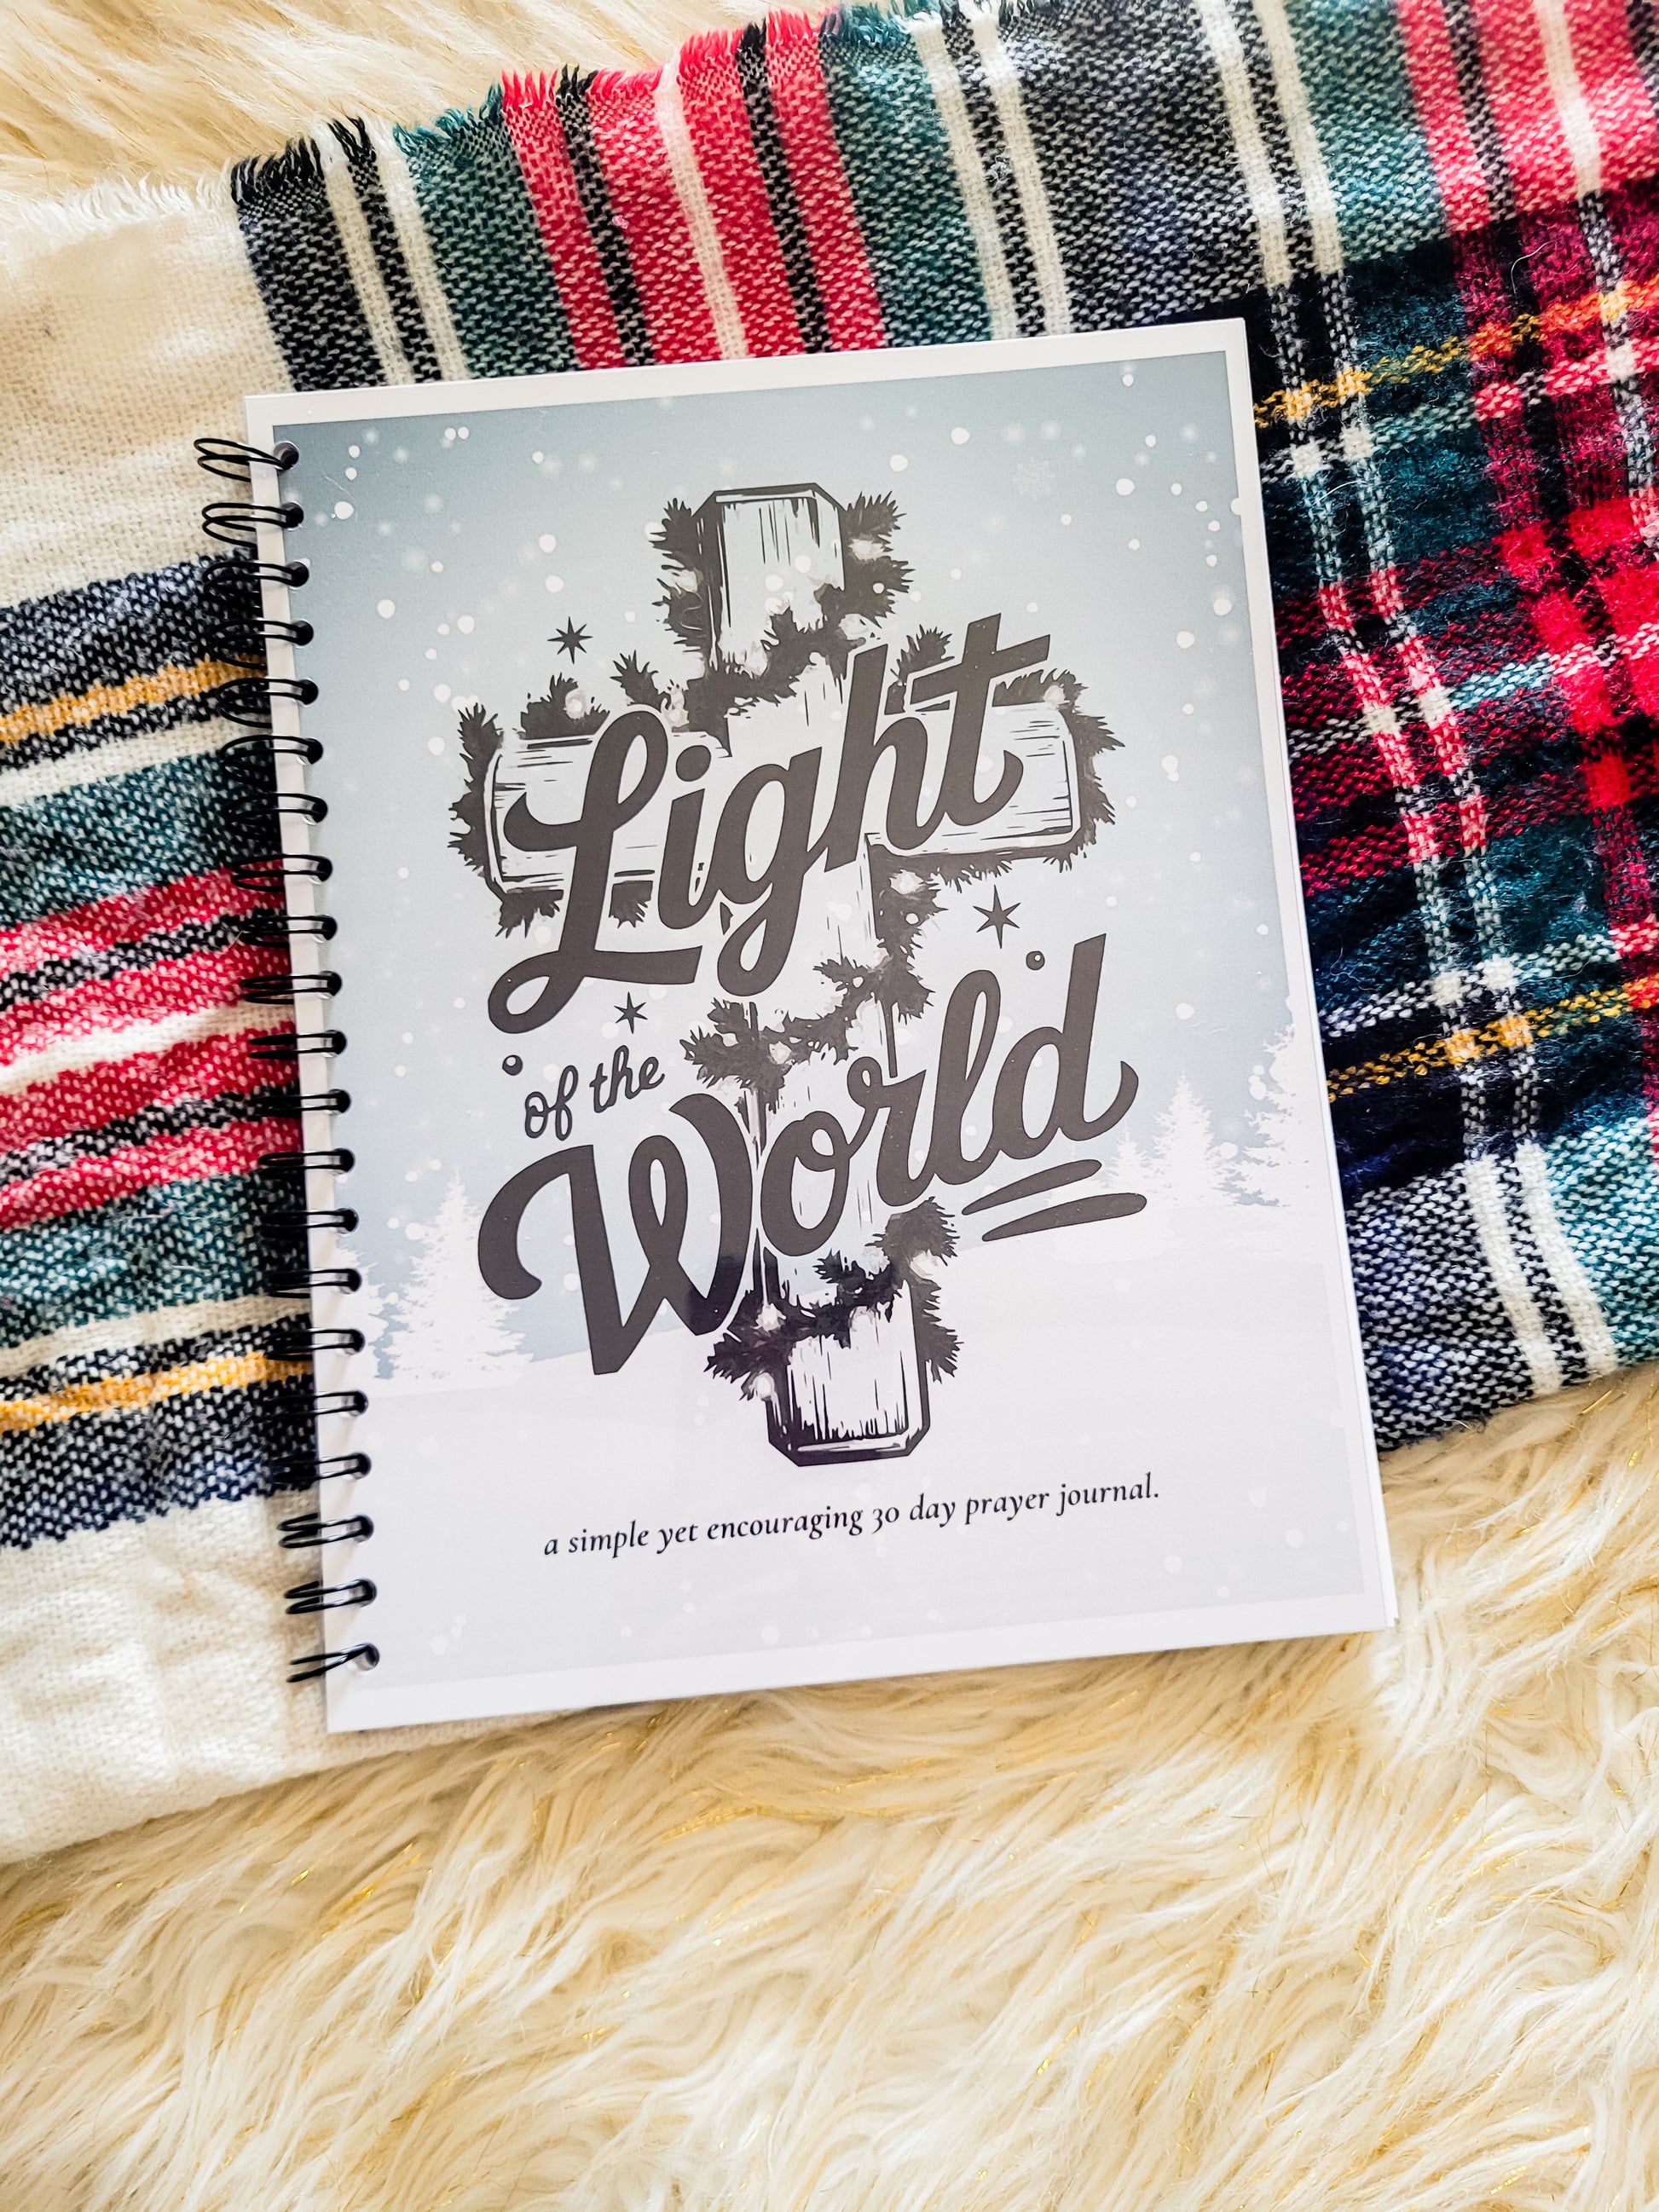 Light
of the
World
a simple yet encouraging 30 day prayer journal.